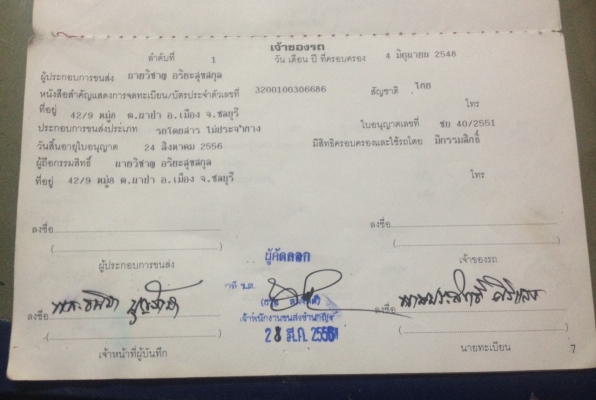 เจ้าของรถ
ลำดับที่ 1 วัน เดือน ปี ที่ครอบครอง 4 มิถุนายน 2548
ผู้ประกอบการขนส่ง นายวิชาญ อริยะสุขสกุล
หนังสือสำคัญแสดงการจดทะเบียน/บัตรประจำตัวเลขที่ 3200100306686 สัญชาติ ไทย
ที่อยู่ 42/9 หมู่8 ต.นาป่า อ.เมือง จ.ชลบุรี โทร
ประกอบการขนส่งประเภท รถโดยสาร ไม่ประจำทาง ใบอนุญาตเลขที่ ชบ 40/2551
วันสิ้นอายุใบอนุญาต 24 สิงหาคม 2556 มีสิทธิครอบครองและใช้รถโดย มีกรรมสิทธิ์
ผู้ถือกรรมสิทธิ์ นายวิชาญ อริยะสุขสกุล
ที่อยู่ 42/9 หมู่8 ต.นาป่า อ.เมือง จ.ชลบุรี โทร
ลงชื่อ ลงชื่อ
( ) ( )
ผู้ประกอบการขนส่ง เจ้าของรถ
ผู้คัดลอก
ลงชื่อ ลงชื่อ
( ) ( )
เจ้าพนักงานขนส่งชำนาญ
28 มี.ค. 255
เจ้าหน้าที่ผู้บันทึก นายทะเบียน
7